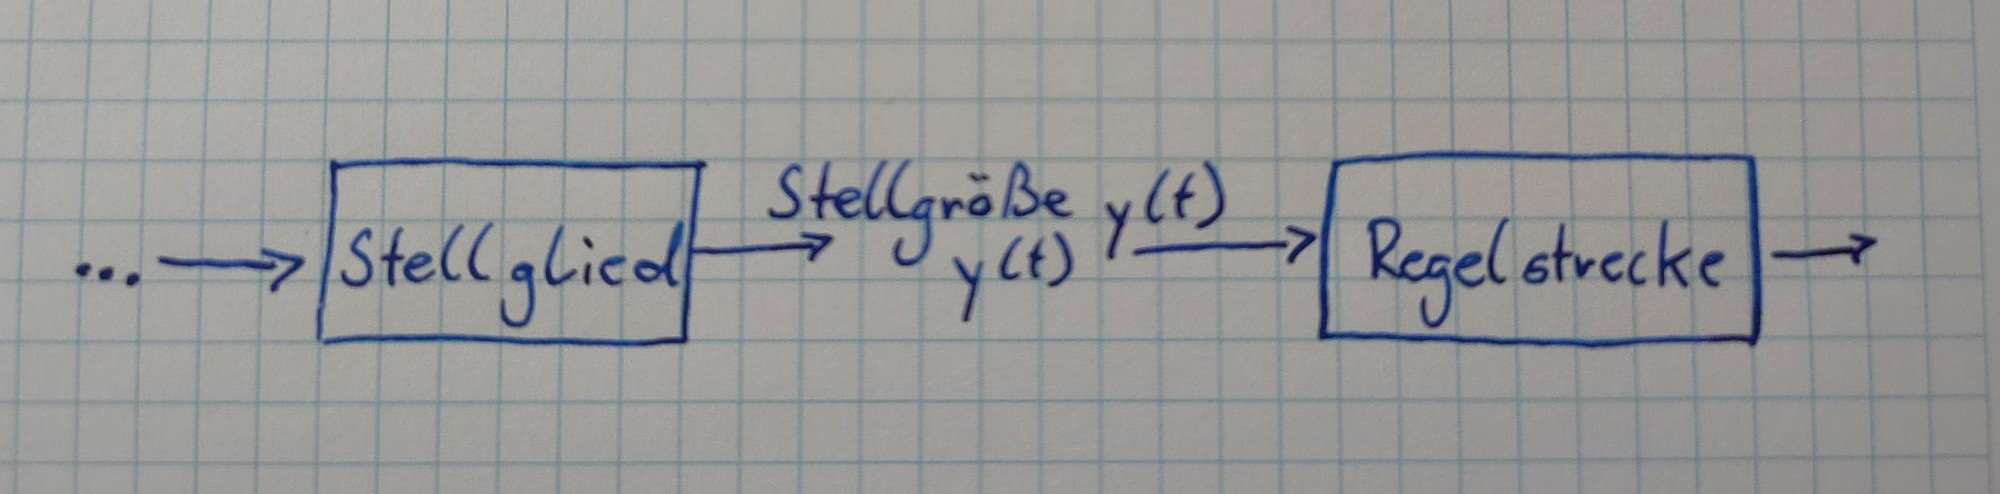 ... Stellglied Stellgröße y(t) Regelstrecke
y(t)